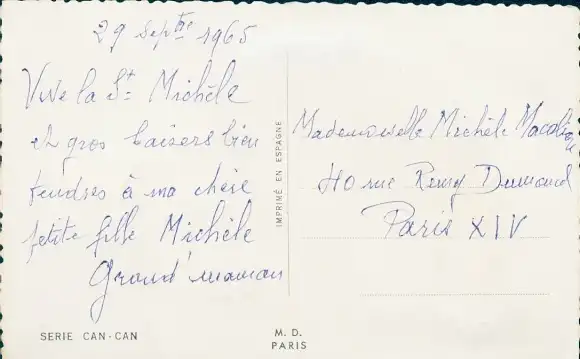 29 Septbre 1965
Vive la St Michèle
et gros baisers bien
tendres à ma chère
petite fille Michèle
Grand'maman
IMPRIMÉ EN ESPAGNE
Mademoiselle Michèle
40 rue Remy Dumoncel
Paris XIV
SERIE CAN-CAN
M. D.
PARIS